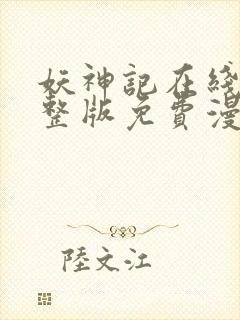 妖神記在綫
整版免費漫
陸文江